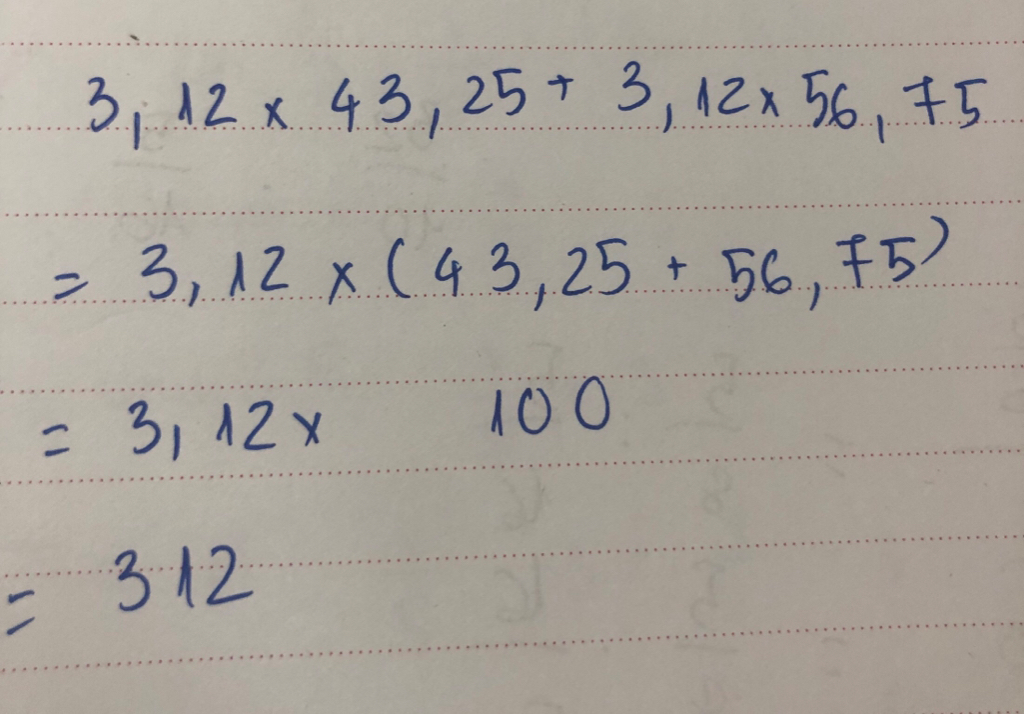 3,12 x 43,25 + 3,12 x 56,75
= 3,12 x (43,25 + 56,75)
= 3,12 x 100
= 312